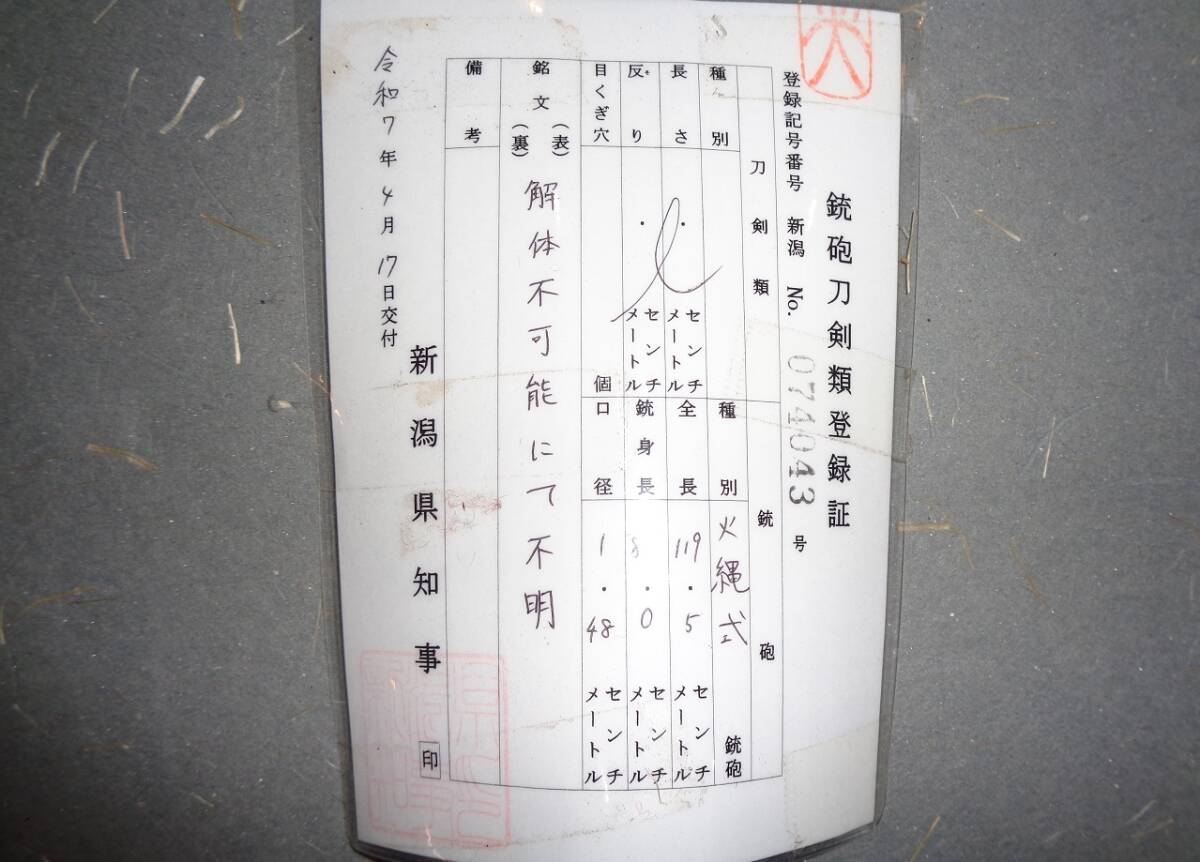 銃砲刀剣類登録証
登録記号番号 新潟 No. 074043 号
刀剣類
種別
長さ ・ センチメートル
反り ・ センチメートル
目くぎ穴 個
銃砲
種別 火縄式 銃砲
全長 119・5 センチメートル
銃身長 ・0 センチメートル
口径 1・48 センチメートル
銘文 (表) (裏) 解体不可能にて不明
備考
令和7年4月17日交付
新潟県知事 印